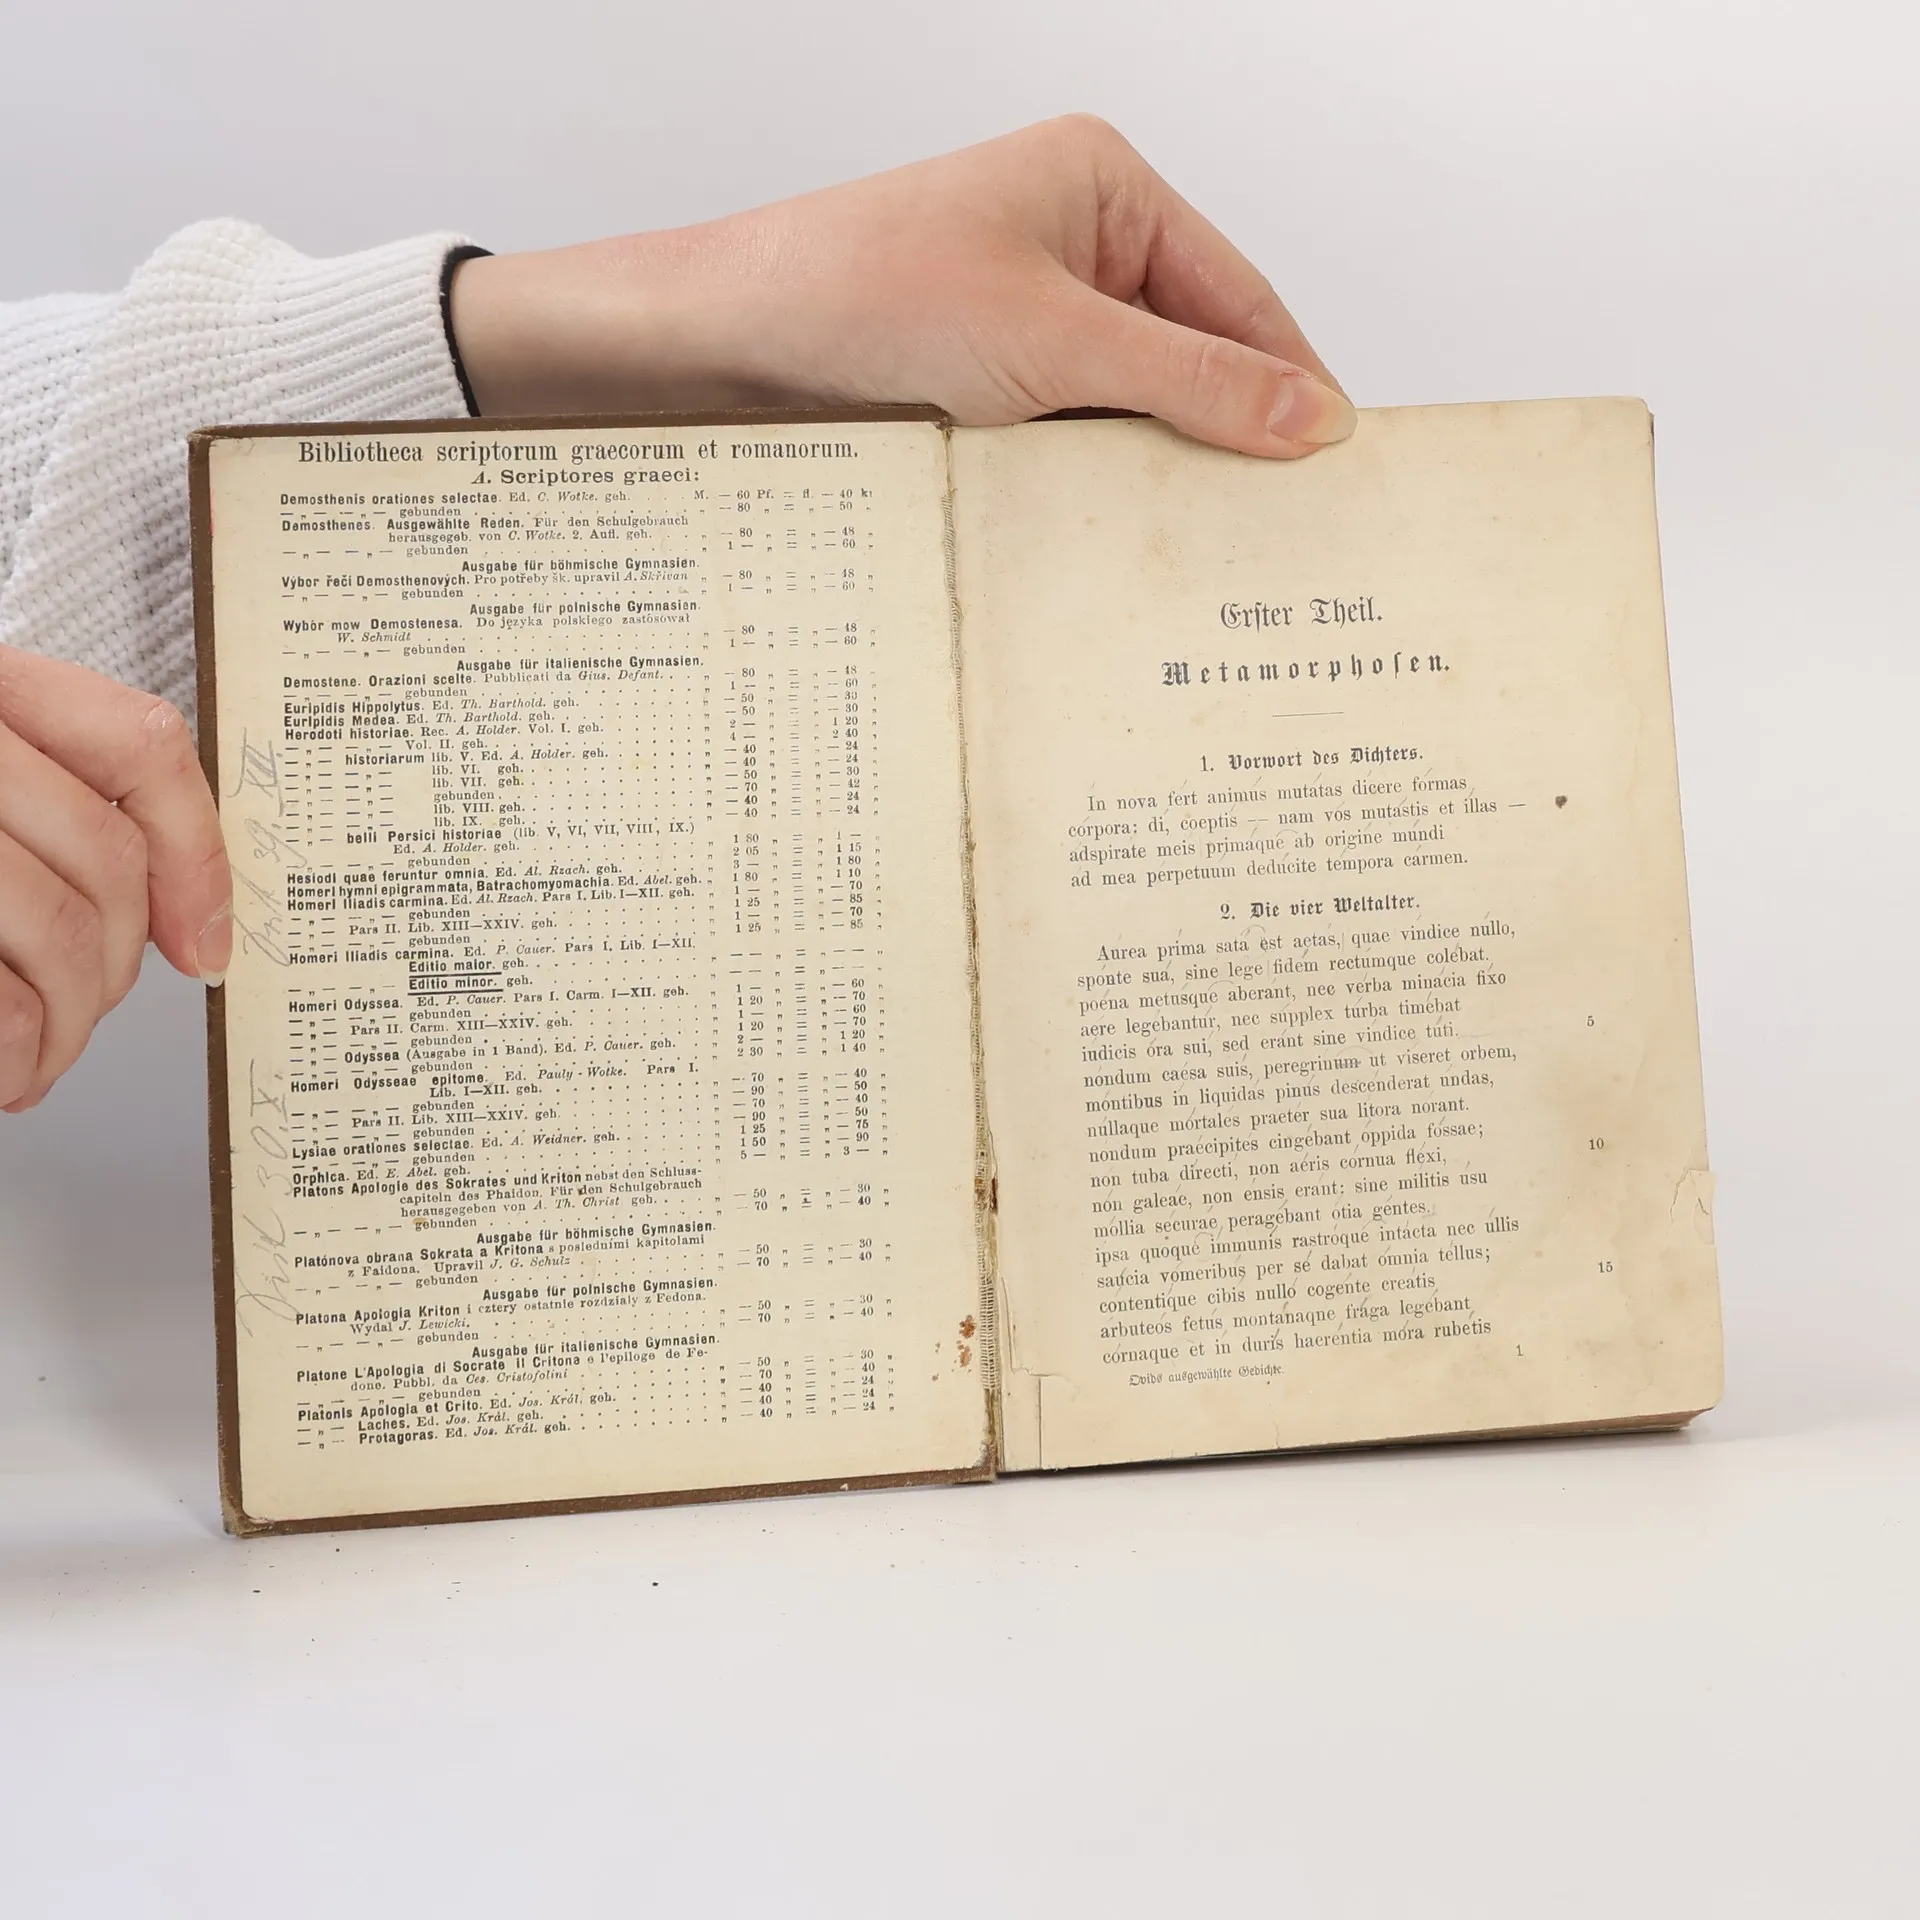 Bibliotheca scriptorum graecorum et romanorum.
A. Scriptores graeci:
Demosthenis orationes selectae. Ed. C. Wotke. geh. . . . M. — 60 Pf. = fl. — 40 kr
— „ — — „ — gebunden . . . . „ — 80 „ = „ — 50 „
Demosthenes. Ausgewählte Reden. Für den Schulgebrauch
herausgegeb. von C. Wotke. 2. Aufl. geh. . . „ — 80 „ = „ — 48 „
— „ — — „ — gebunden . . . . „ 1 — „ = „ — 60 „
Ausgabe für böhmische Gymnasien.
Výbor řečí Demosthenových. Pro potřeby šk. upravil A. Skřivan „ — 80 „ = „ — 48 „
— „ — — „ — gebunden . . . . „ 1 — „ = „ — 60 „
Ausgabe für polnische Gymnasien.
Wybór mow Demostenesa. Do języka polskiego zastósował
W. Schmidt . . . . „ — 80 „ = „ — 48 „
— „ — — „ — gebunden . . . . „ 1 — „ = „ — 60 „
Ausgabe für italienische Gymnasien.
Demostene. Orazioni scelte. Pubblicati da Gius. Defant. . . „ — 80 „ = „ — 48 „
— „ — — „ — gebunden . . . . „ 1 — „ = „ — 60 „
Euripidis Hippolytus. Ed. Th. Barthold. geh. . . . „ — 50 „ = „ — 30 „
Euripidis Medea. Ed. Th. Barthold. geh. . . . „ — 50 „ = „ — 30 „
Herodoti historiae. Rec. A. Holder. Vol. I. geh. . . . „ 2 — „ = „ 1 20 „
— „ — — „ — Vol. II. geh. . . . „ 4 — „ = „ 2 40 „
— „ — historiarum lib. V. Ed. A. Holder. geh. . . . „ — 40 „ = „ — 24 „
— „ — — „ — lib. VI. geh. . . . „ — 40 „ = „ — 24 „
— „ — — „ — lib. VII. geh. . . . „ — 50 „ = „ — 30 „
— „ — — „ — gebunden . . . . „ — 70 „ = „ — 42 „
— „ — — „ — lib. VIII. geh. . . . „ — 40 „ = „ — 24 „
— „ — — „ — lib. IX. geh. . . . „ — 40 „ = „ — 24 „
— „ — belli Persici historiae (lib. V, VI, VII, VIII, IX.)
Ed. A. Holder. geh. . . . „ 1 80 „ = „ 1 — „
— „ — — „ — gebunden . . . . „ 2 05 „ = „ 1 15 „
Hesiodi quae feruntur omnia. Ed. Al. Rzach. geh. . . „ 3 — „ = „ 1 80 „
Homeri hymni epigrammata, Batrachomyomachia. Ed. Abel. geh. „ 1 80 „ = „ 1 10 „
Homeri Iliadis carmina. Ed. Al. Rzach. Pars I. Lib. I—XII. geh. „ 1 — „ = „ — 70 „
— „ — — „ — gebunden . . . . „ 1 25 „ = „ — 85 „
— „ — Pars II. Lib. XIII—XXIV. geh. . . . „ 1 — „ = „ — 70 „
— „ — — „ — gebunden . . . . „ 1 25 „ = „ — 85 „
Homeri Iliadis carmina. Ed. P. Cauer. Pars I. Lib. I—XII.
Editio maior. geh. . . . „ — — „ = „ — — „
— „ — — „ — Editio minor. geh. . . . „ — — „ = „ — — „
Homeri Odyssea. Ed. P. Cauer. Pars I. Carm. I—XII. geh. „ 1 — „ = „ — 60 „
— „ — — „ — gebunden . . . . „ 1 20 „ = „ — 70 „
— „ — Pars II. Carm. XIII—XXIV. geh. . . . „ 1 — „ = „ — 60 „
— „ — — „ — gebunden . . . . „ 1 20 „ = „ — 70 „
— „ — Odyssea (Ausgabe in 1 Band). Ed. P. Cauer. geh. . „ 2 — „ = „ 1 20 „
— „ — — „ — gebunden . . . . „ 2 30 „ = „ 1 40 „
Homeri Odysseae epitome. Ed. Pauly-Wotke. Pars I.
Lib. I—XII. geh. . . . „ — 70 „ = „ — 40 „
— „ — — „ — gebunden . . . . „ — 90 „ = „ — 50 „
— „ — Pars II. Lib. XIII—XXIV. geh. . . . „ — 70 „ = „ — 40 „
— „ — — „ — gebunden . . . . „ — 90 „ = „ — 50 „
Lysiae orationes selectae. Ed. A. Weidner. geh. . . . „ 1 25 „ = „ — 75 „
— „ — — „ — gebunden . . . . „ 1 50 „ = „ — 90 „
Orphica. Ed. E. Abel. geh. . . . „ 5 — „ = „ 3 — „
Platons Apologie des Sokrates und Kriton nebst den Schluss-
capiteln des Phaidon. Für den Schulgebrauch
herausgegeben von A. Th. Christ geh. . . . „ — 50 „ = „ — 30 „
— „ — — „ — gebunden . . . . „ — 70 „ = „ — 40 „
Ausgabe für böhmische Gymnasien.
Platónova obrana Sokrata a Kritona s posledními kapitolami
z Faidona. Upravil J. G. Schulz . . . . „ — 50 „ = „ — 30 „
— „ — — „ — gebunden . . . . „ — 70 „ = „ — 40 „
Ausgabe für polnische Gymnasien.
Platona Apologia Kriton i cztery ostatnie rozdziały z Fedona.
Wydal J. Lewicki. . . . „ — 50 „ = „ — 30 „
— „ — — „ — gebunden . . . . „ — 70 „ = „ — 40 „
Ausgabe für italienische Gymnasien.
Platone L'Apologia di Socrate il Critone e l'epiloge de Fe-
done. Pubbl. da Ces. Cristofolini . . . . „ — 50 „ = „ — 30 „
— „ — — „ — gebunden . . . . „ — 70 „ = „ — 40 „
Platonis Apologia et Crito. Ed. Jos. Král. geh. . . . „ — 40 „ = „ — 24 „
— „ — Laches. Ed. Jos. Král. geh. . . . „ — 40 „ = „ — 24 „
— „ — Protagoras. Ed. Jos. Král. geh. . . . „ — 40 „ = „ — 24 „
39. XII.
30. X.
Erſter Theil.
Metamorphoſen.
1. Vorwort des Dichters.
In nova fert animus mutatas dicere formas
corpora: di, coeptis — nam vos mutastis et illas —
adspirate meis primaque ab origine mundi
ad mea perpetuum deducite tempora carmen.
2. Die vier Weltalter.
Aurea prima sata est aetas, quae vindice nullo,
sponte sua, sine lege fidem rectumque colebat.
poena metusque aberant, nec verba minacia fixo
aere legebantur, nec supplex turba timebat
iudicis ora sui, sed erant sine vindice tuti. 5
nondum caesa suis, peregrinum ut viseret orbem,
montibus in liquidas pinus descenderat undas,
nullaque mortales praeter sua litora norant.
nondum praecipites cingebant oppida fossae;
non tuba directi, non aeris cornua flexi, 10
non galeae, non ensis erant: sine militis usu
mollia securae peragebant otia gentes.
ipsa quoque immunis rastroque intacta nec ullis
saucia vomeribus per se dabat omnia tellus;
contentique cibis nullo cogente creatis 15
arbuteos fetus montanaque fraga legebant
cornaque et in duris haerentia mora rubetis
Ovids ausgewählte Gedichte. 1